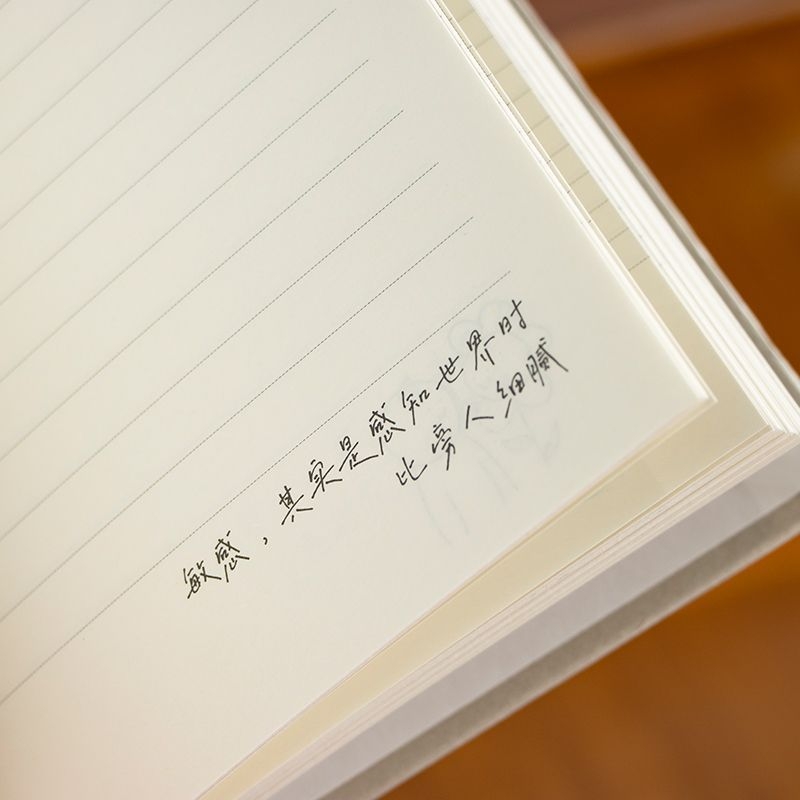 敏感，其实是感知世界时
比旁人细腻